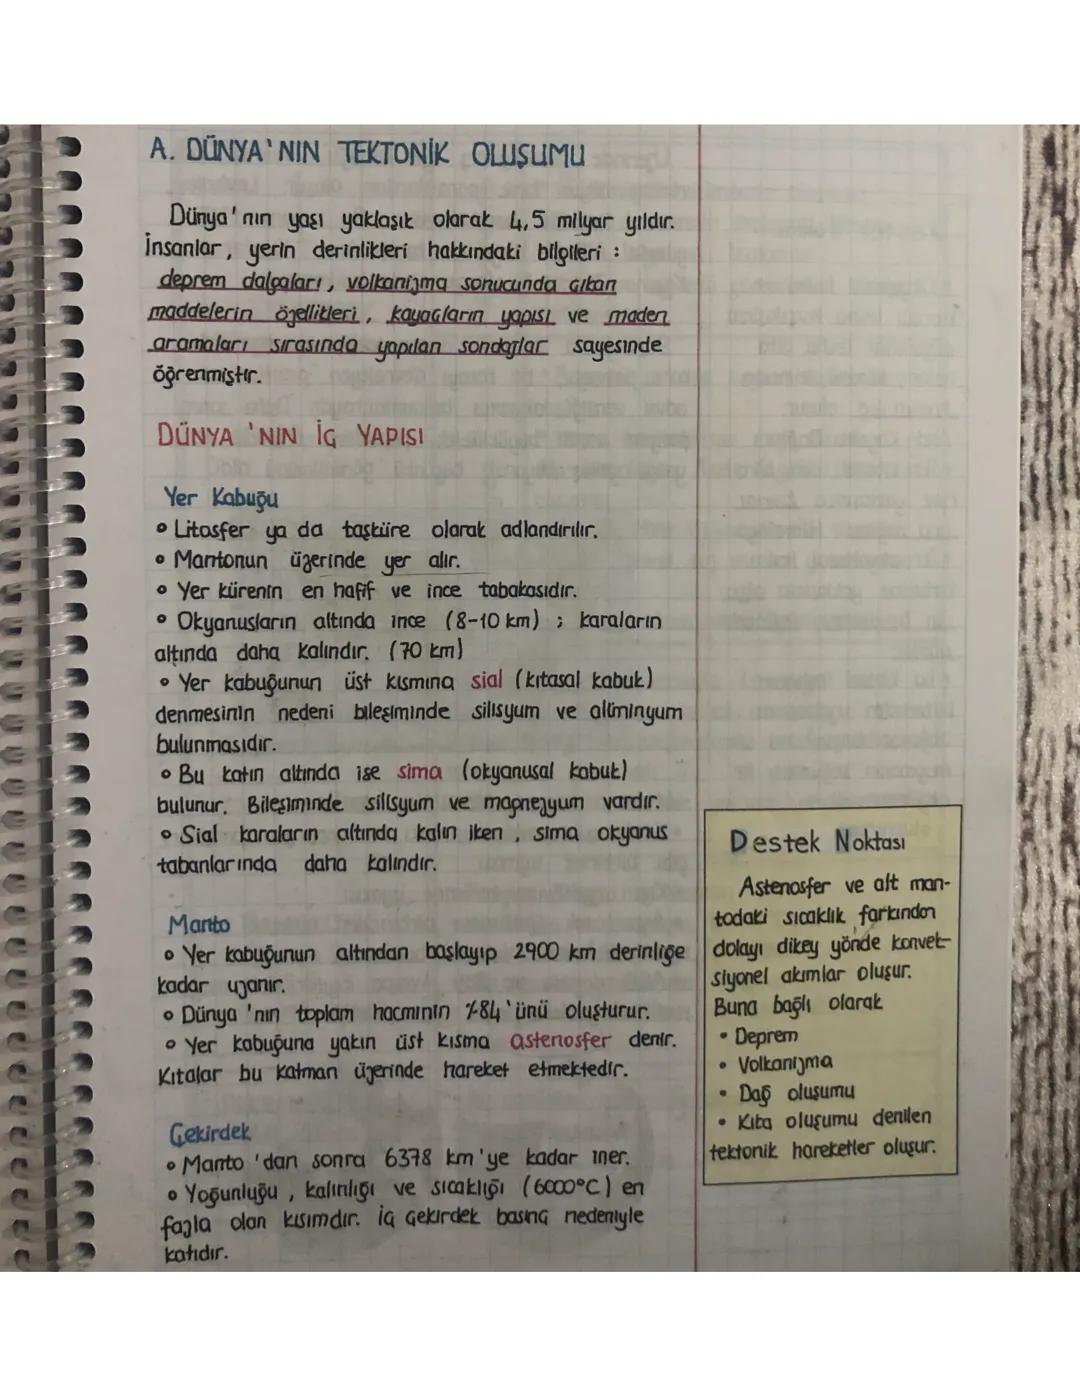 A. DÜNYA'NIN TEKTONİK OLUŞUMU
Dünya'nın yaşı yaklaşık olarak 4,5 milyar yıldır.
İnsanlar, yerin derinlikleri hakkındaki bilgileri :
deprem dalgaları, volkanizma sonucunda çıkan
maddelerin özellikleri, kayaçların yapısı ve maden
aramaları sırasında yapılan sondajlar sayesinde
öğrenmiştir.
DÜNYA 'NIN İÇ YAPISI
Yer Kabuğu
• Litosfer ya da taşküre olarak adlandırılır.
• Mantonun üzerinde yer alır.
• Yer kürenin en hafif ve ince tabakasıdır.
• Okyanusların altında ince (8-10 km) ; karaların
altında daha kalındır. (70 km)
• Yer kabuğunun üst kısmına sial (kıtasal kabuk)
denmesinin nedeni bileşiminde silisyum ve alüminyum
bulunmasıdır.
• Bu katın altında ise sima (okyanusal kabuk)
bulunur. Bileşiminde silisyum ve magnezyum vardır.
• Sial karaların altında kalın iken, sima okyanus
tabanlarında daha kalındır.
Manto
• Yer kabuğunun altından başlayıp 2900 km derinliğe
kadar uzanır.
• Dünya 'nın toplam hacminin %84'ünü oluşturur.
• Yer kabuğuna yakın üst kısma astenosfer denir.
Kıtalar bu katman üzerinde hareket etmektedir.
Çekirdek
• Manto 'dan sonra 6378 km'ye kadar iner.
• Yoğunluğu, kalınlığı ve sıcaklığı (6000°C) en
fazla olan kısımdır. İç çekirdek basınç nedeniyle
katıdır.
Destek Noktası
Astenosfer ve alt man-
todaki sıcaklık farkından
dolayı dikey yönde konvek-
siyonel akımlar oluşur.
Buna bağlı olarak
• Deprem
• Volkanizma
• Dağ oluşumu
• Kıta oluşumu denilen
tektonik hareketler oluşur.